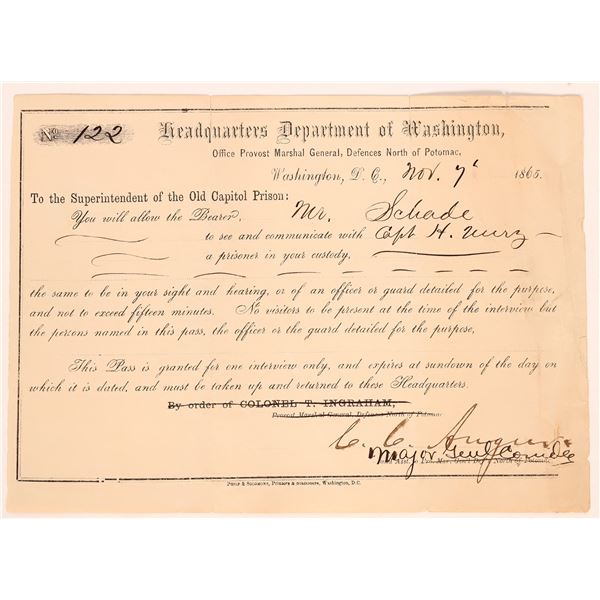 No. 122
Headquarters Department of Washington,
Office Provost Marshal General, Defences North of Potomac,
Washington, D. C., Nov. 7' 1865.
To the Superintendent of the Old Capitol Prison:
You will allow the Bearer, Mr. Schade
to see and communicate with Capt H. Wurz
a prisoner in your custody,
the same to be in your sight and hearing, or of an officer or guard detailed for the purpose,
and not to exceed fifteen minutes. No visitors to be present at the time of the interview but
the persons named in this pass, the officer or the guard detailed for the purpose,
This Pass is granted for one interview only, and expires at sundown of the day on
which it is dated, and must be taken up and returned to these Headquarters.
By order of COLONEL T. INGRAHAM,
Provost Marshal General, Defences North of Potomac
C. C. Augur
Major Genl Comdg
North of Potomac.
PHILP & SOLOMONS, Washington, D.C.